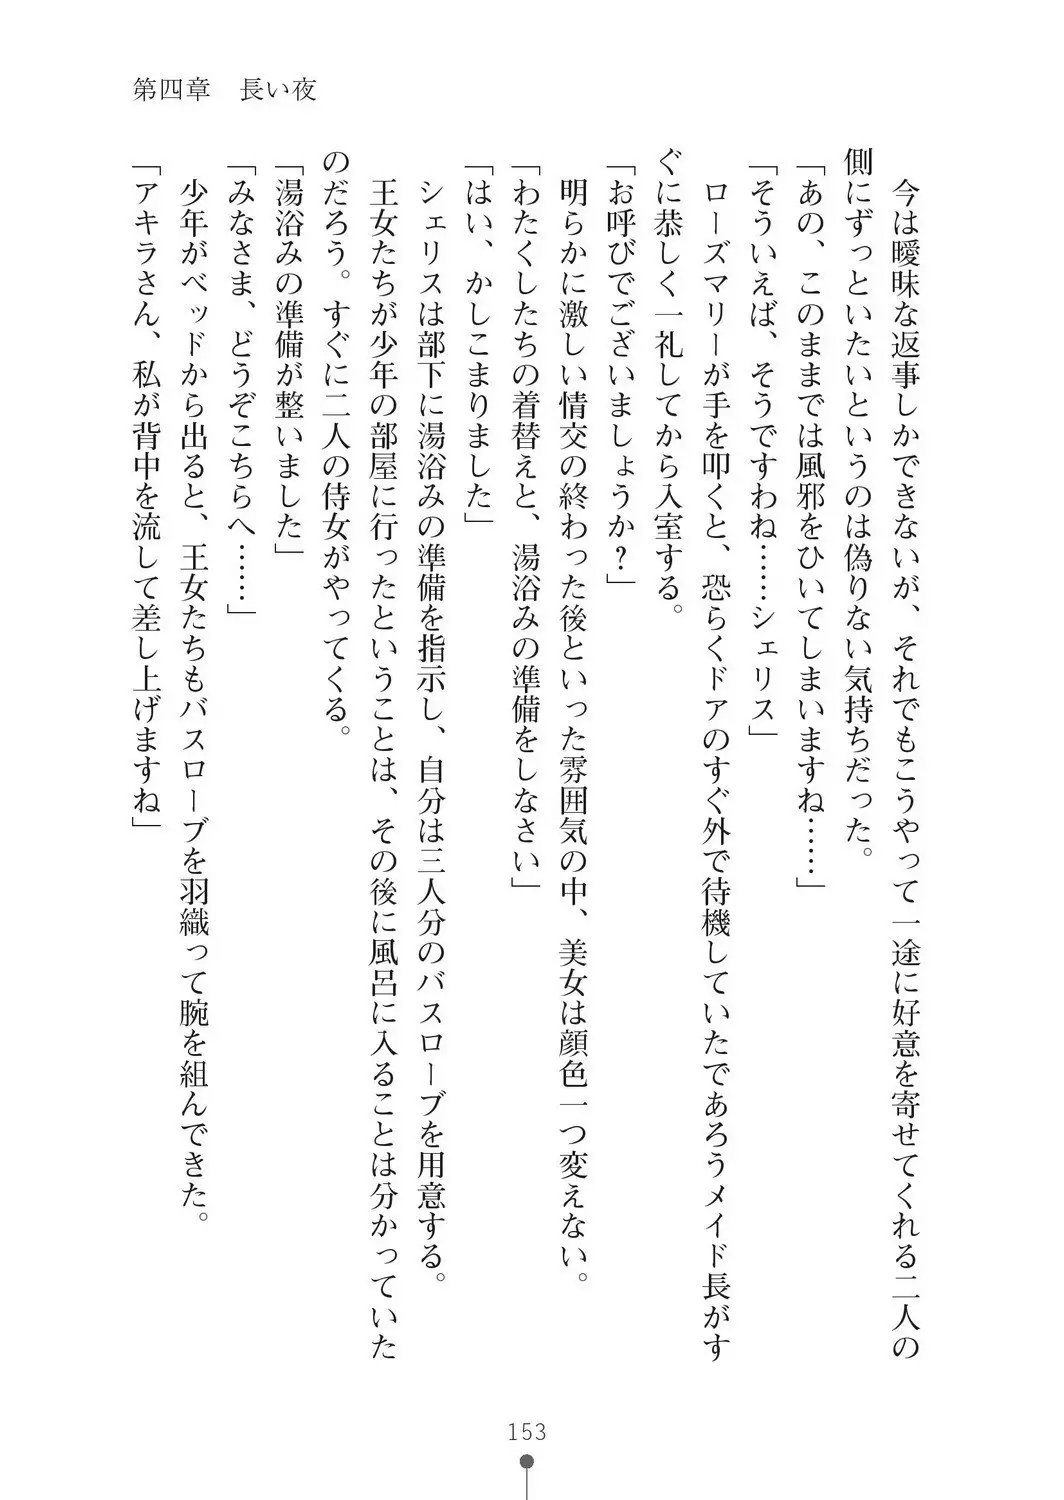 第四章　長い夜
　今は曖昧な返事しかできないが、それでもこうやって一途に好意を寄せてくれる二人の
側にずっといたいというのは偽りない気持ちだった。
「あの、このままでは風邪をひいてしまいますね……」
「そういえば、そうですわね……シェリス」
　ローズマリーが手を叩くと、恐らくドアのすぐ外で待機していたであろうメイド長がす
ぐに恭しく一礼してから入室する。
「お呼びでございましょうか？」
　明らかに激しい情交の終わった後といった雰囲気の中、美女は顔色一つ変えない。
「わたくしたちの着替えと、湯浴みの準備をしなさい」
「はい、かしこまりました」
　シェリスは部下に湯浴みの準備を指示し、自分は三人分のバスローブを用意する。
　王女たちが少年の部屋に行ったということは、その後に風呂に入ることは分かっていた
のだろう。すぐに二人の侍女がやってくる。
「湯浴みの準備が整いました」
「みなさま、どうぞこちらへ……」
　少年がベッドから出ると、王女たちもバスローブを羽織って腕を組んできた。
「アキラさん、私が背中を流して差し上げますね」
153